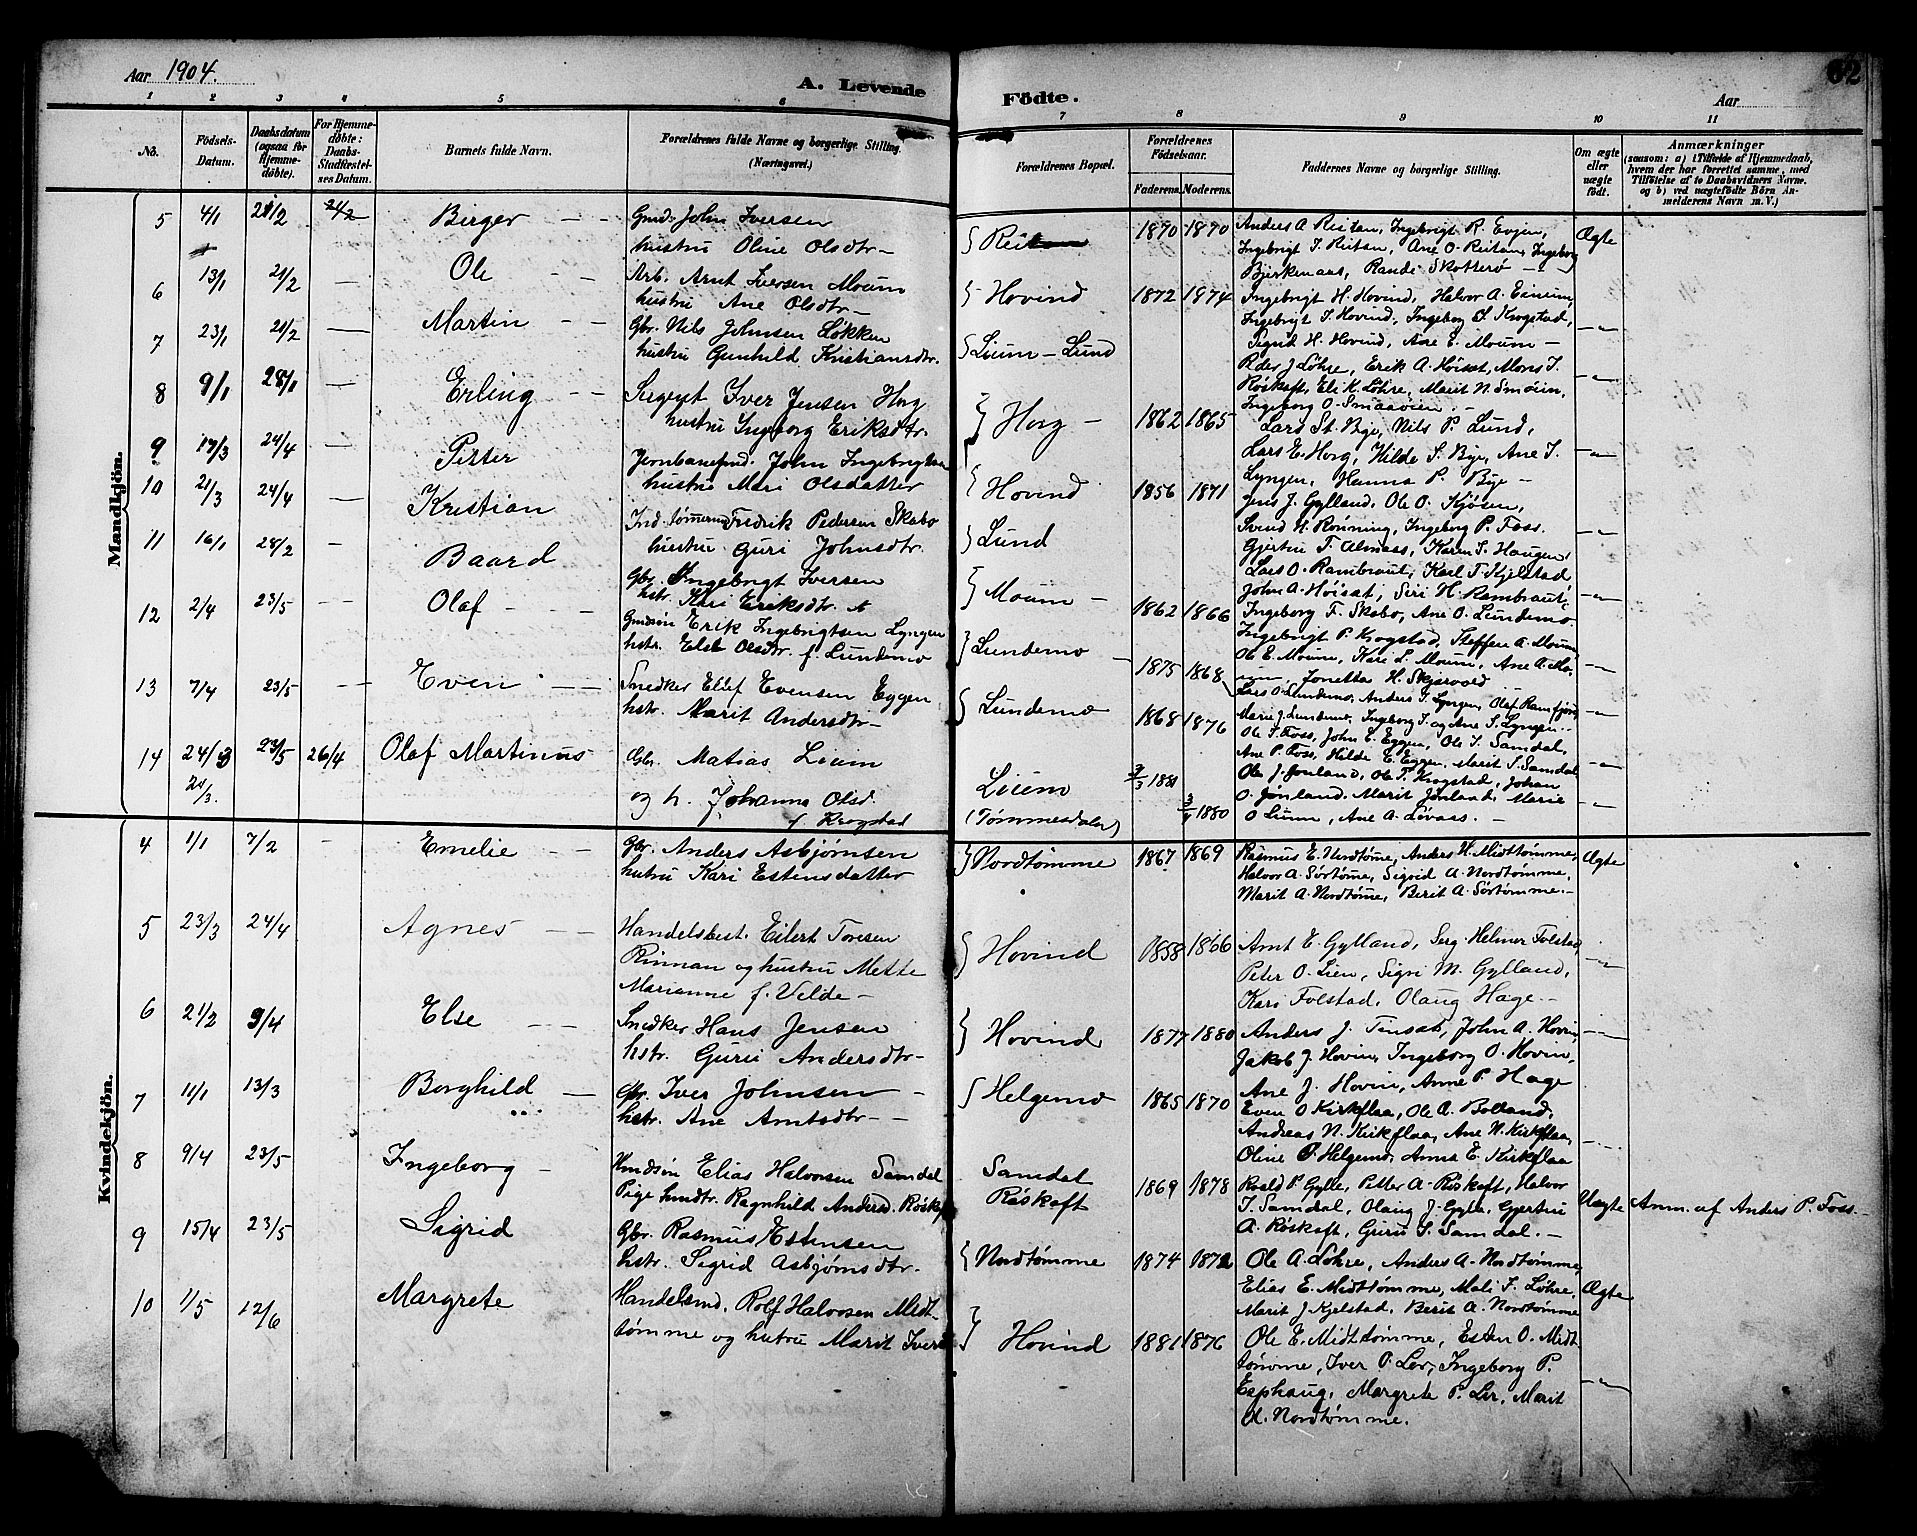 Aar 1904.
A. Levende
Födte.
Aar
62
1 2 3 4 5 6
7 8 9 10 11
No.
Födsels-Datum.
Daabsdatum (ogsaa for Hjemmedöbte).
For Hjemmedöbte: Daabs-Stadfæstelses Datum.
Barnets fulde Navn.
Forældrenes fulde Navne og borgerlige Stilling. (Næringsvei.)
Forældrenes Bopæl.
Forældrenes Födselsaar.
Faderens. Moderens.
Faddernes Navne og borgerlige Stilling.
Om ægte eller uægte födt.
Anmærkninger
(saasom: a) i Tilfælde af Hjemmedaab,
hvem der har forrettet samme, med
Tilföielse af to Daabsvidners Navne,
og b) ved uægtefödte Börn An-
melderens Navn m. V.)
Mandkjön.
5 4/1 21/2 21/2 Birger — — Gmd. John Iversen
hustru Oline Olsdtr —
Reitan 1870 1870 Anders A. Reitan, Ingebrigt R. Evjen, Ægte
Ingebrigt I. Reitan, Ane O. Reitan, Ingeborg
Bjerkenaas, Randi Skotterø —
6 13/1 21/2 — Ole — — Arb. Arnt Iversen Moum
hustru Ane Olsdtr —
Hovind 1872 1874 Ingebrigt H. Hovind, Halvor A. Eineum,
Ingebrigt I. Hovind, Ingeborg Krogstad, —"—
Sigrid H. Hovind, Ane E. Moum —
7 23/1 21/2 — Martin — — Gbr. Nils Johnsen Løkken
hustru Gunhild Kristiansdtr.
Lium - Lund
Peder J. Løhre, Erik A. Høisat, Mons I. —"—
Röskaft, Eli K. Løhre, Marit N. Smøien,
Ingeborg O. Smaavien. —
8 9/1 28/1 — Erling — — Sergent Iver Jensen Horg
hustru Ingeborg Eriksdtr.
Horg — 1862 1865 Lars St. Bye, Nils P. Lund,
Lars E. Horg, Hilde S. Bye, Ane I. —"—
Lyngen, Hanna P. Bye —
9 17/3 24/4 Petter Jernbanefmd. John Ingebrigtsen
hustru Mari Olsdatter
Hovind 1856 1871 Jens J. Gylland, Ole O. Kjøien,
Svend H. Rønning, Ingeborg P. Foss. —"—
Gjertru T. Almaas, Karen S. Haugen
10 21/3 24/4 — Kristian Ind. tømmerm. Fredrik Pedersen Skabo
hustru Guri Johnsdtr.
Lund
Lars O. Rambraut, Karl T. Kjelstad
John A. Høisat, Siri H. Rambraut, —"—
Ingeborg F. Skabo, Ane O. Lundemo.
11 16/1 28/2 — Baard Gbr. Ingebrigt Iversen
hstr. Kari Eriksdtr.
Moum — 1862 1866 Ingebrigt P. Krogstad, Steffen A. Moum,
Ole E. Moum, Kari L. Moum, Ane A. Mo- —"—
um, Jonetta H. Skjervold
12 2/4 23/5 — — Olaf — — Gmdsön Erik Ingebrigtsen Lyngen
hstr. Else Olsdtr. f. Lundemo
Lundemo — 1875 1868 Lars O. Lundemo, Anders I. Lyngen, Olaf Ramfjord, —"—
Marie J. Lundemo, Ingeborg I. og Ane S. Lyngen. —
13 7/4 23/5 — — Even — — Snedker Ellef Evensen Eggen
hstr. Marit Andersdtr —
Lundemo 1868 1876 Ole I. Foss, John E. Eggen, Ole I. Samdal,
Ane P. Foss, Hilde E. Eggen, Marit I. Samdal —"—
14 24/3 23/5 26/4 Olaf Martinus Gbr. Matias Lium
24/3. og h. Johanna Olsd.
f. Krogstad
Lium (Tømmesdalen) 3/3 1881 3/4 1880 Ole J. Jonland, Ole P. Krogstad, Johan
O. Jønland, Marit Jønland, Marie —"—
O Lium, Ane A. Løvaas. —
Kvindekjön.
4 1/1 7/2 — Emelie — — Gbr. Anders Asbjørnsen
hutru Kari Estensdatter
Nordtømme 1867 1869 Rasmus E. Nordtøme, Anders H. Midttømme, Ægte
Halvor A. Sörtöme, Sigrid A. Nordtømme,
Marit A. Nordtøme, Berit A. Sörtømme. —
5 23/3 24/4 Agnes — — Handelsbest. Eilert Toresen
Rinnan og hustru Mette
Marianne f. Velde —
Hovind 1858 1866 Arnt E. Gylland, Serg. Helmer Folstad, —"—
Peter O. Lien, Sigri M. Gylland,
Kari Folstad, Olaug Hage. —
6 21/2 9/4 Else — — Snedker Hans Jensen
hstr. Guru Andersdtr —
Hovind 1877 1880 Anders J. Tinsat, John A. Hovin, —"—
Jakob J. Hovin, Ingeborg O. Hovin,
Ane J. Hovin, Anne P. Hage
7 11/1 13/3 Borghild — Gbr. Iver Johnsen —
hstr. Ane Arntsdtr —
Helgemo 1865 1870 Even O Kirkflaa, Ole A. Bolland,
Andreas N. Kirkflaa, Ane N. Kirkflaa, —"—
Oline P. Helgemo, Anna E. Kirkflaa
8 9/4 23/5 Ingeborg — Gmdsön Elias Halvorsen Samdal
Pige Inndtr. Ragnhild Andersd. Röskaft
Samdal
Röskaft 1869 1878 Roald P. Gylle, Petter A. Röskaft, Halvor
I. Samdal, Olaug J. Gylle, Gjertru Uægte Anm. af Anders P. Foss —
A. Röskaft, Guru I. Samdal. —
9 15/4 23/5 Sigrid Gbr. Rasmus Estensen
hstr. Sigrid Asbjørnsdtr.
Nordtømme 1874 1872 Ole A. Løhre, Anders A. Nordtømme,
Elias E. Midttømme, Mali I. Løhre, Ægte
Marit J Kjelstad, Berit A. Nordtømme
10 1/5 12/6 Margrete Handelsmd. Rolf Halvorsen Midt-
tømme og hutru Marit Ivers
Hovind 1881 1876 Ole E. Midttømme, Esten O. Midt
tømme, Iver P. Ler, Ingeborg P. —"—
Esphaug, Margrete P. Ler, Marit
A. Nordtømme.